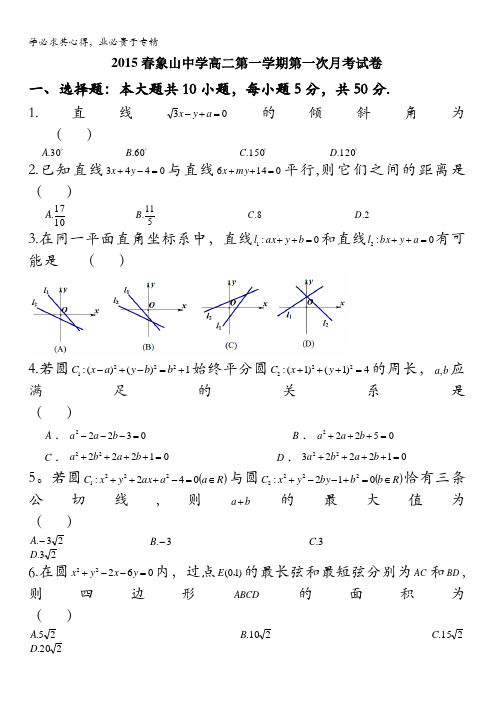 学必求其心得，业必贵于专精
2015春象山中学高二第一学期第一次月考试卷
一、选择题：本大题共10小题，每小题5分，共50分.
1. 直线 √3x−y+a=0 的倾斜角为
（ ）
A.30° B.60° C.150° D.120°
2.已知直线3x+4y−4=0与直线6x+my+14=0平行,则它们之间的距离是
（ ）
A.17/10 B.11/5 C.8 D.2
3.在同一平面直角坐标系中，直线l₁:ax+y+b=0和直线l₂:bx+y+a=0有可
能是 （ ）
l₁ l₂ O x y (A)
l₁ l₂ O x y (B)
l₁ l₂ O x y (C)
l₁ l₂ O x y (D)
4.若圆C₁:(x−a)²+(y−b)²=b²+1始终平分圆C₂:(x+1)²+(y+1)²=4的周长，a,b应
满足的关系是
（ ）
A．a²−2a−2b−3=0 B．a²+2a+2b+5=0
C．a²+2b²+2a+2b+1=0 D．3a²+2b²+2a+2b+1=0
5。若圆C₁:x²+y²+2ax+a²−4=0(a∈R)与圆C₂:x²+y²−2by−1+b²=0(b∈R)恰有三条
公切线，则a+b的最大值为
（ ）
A.−3√2 B.−3 C.3
D.3√2
6.在圆x²+y²−2x−6y=0内，过点E(0,1)的最长弦和最短弦分别为AC和BD，
则四边形ABCD的面积为
（ ）
A.5√2 B.10√2 C.15√2
D.20√2